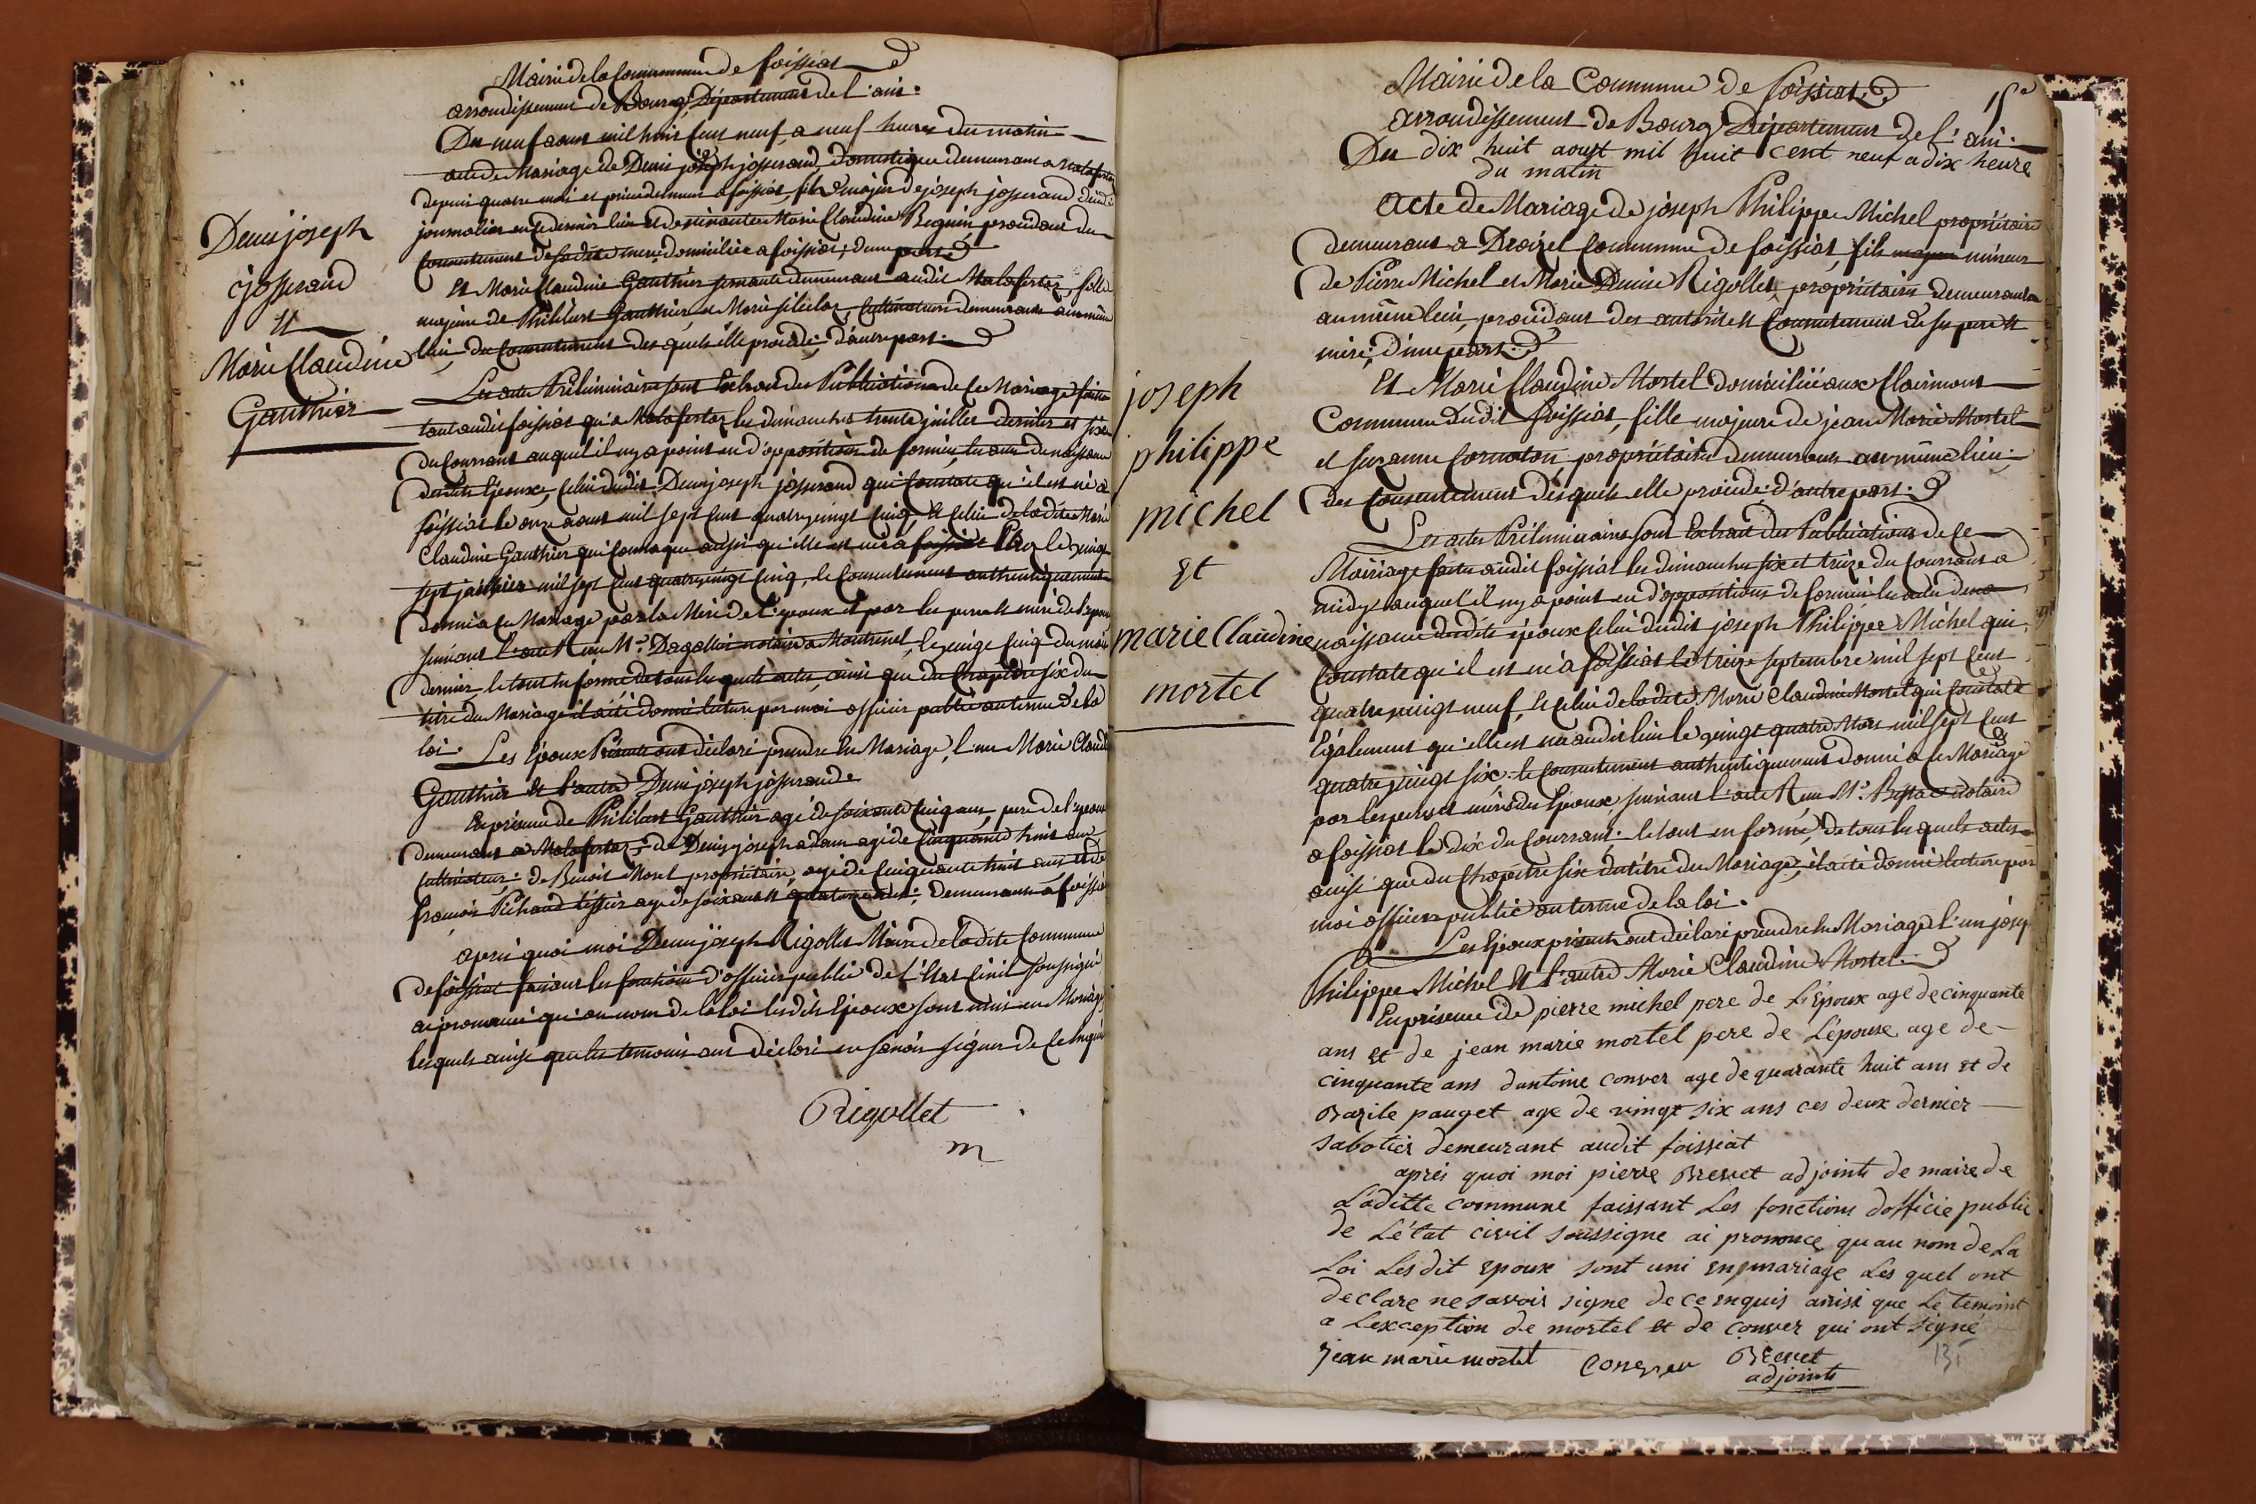 Mairie de la Commune de foissiat
arrondissement de Bourg, Département de l'ain.
Du neuf aoust mil huit cent neuf, a neuf heures du matin
acte de Mariage de Denis joseph josserand domestique demeurant a malafretaz
depuis quatre mois et précédemment a foissiat, fils majeur de joseph josserand
journalier en ce dernier lieu et de Marie Claudine Beguin procédant du
Consentement de sadite mere domiciliée a foissiat; d'une part
Denis joseph
josserand
et
Marie Claudine
Gauthier
Et Marie Claudine Gauthier servante demeurant audit Malafretaz, fille
majeure de Philibert Gauthier, et Marie cultivateurs demeurant au même
lieu, du Consentement des quels elle procede; d'autre part.
Les actes Préliminaires sont Extrait des Publications de ce Mariage faites
tant audit foissiat qu'a Malafretaz les dimanches trente juillet dernier et six
du Courrant auquel il n'y a point eu d'opposition de formée, les actes de naissance
desdits Epoux, Celui dudit Denis joseph josserand qui Constate qu'il est né a
foissiat le onze aoust mil sept cent quatre vingt cinq, et celui de ladite Marie
Claudine Gauthier qui aussi qu'elle est née a le vingt
sept mil sept cent quatre vingt cinq, le Consentement authentiquement
donné a ce Mariage par la Mere de l'epoux et par les pere et mere de l'epouse
suivant l'acte Reçu Mr. notaire a Montrevel, le vingt cinq du mois
dernier le tout en forme de tous les quels actes, ainsi que du Chapitre six du
titre du Mariage il a été donné lecture par moi officier public au terme de la
loi. Les Epoux Présents ont déclaré prendre En Mariage, l'un Marie Claudine
Gauthier et l'autre Denis joseph josserand
En présence de Philibert Gauthier agé de soixante cinq ans, pere de l'epouse
demeurant a Malafretaz, de Denis joseph adam agé de Cinquante huit ans
Cultivateur: de Benoit Morel propriétaire, agé de Cinquante huit ans et de
francois Pichaud tissier agé de soixante quatorze ans; demeurant a foissiat
apres quoi moi Denis joseph Rigollet Maire de ladite Commune
de foissiat faisant les fonctions d'officier public de l'Etat Civil soussigné
ai prononcé qu'au nom de la loi lesdits Epoux sont unis en Mariage
lesquels ainsi que les temoins ont déclaré ne savoir signer de ce Enquis
Rigollet
m
15e
Mairie de la Commune de foissiat
arrondissement de Bourg, Département de l'ain.
Du dix huit aoust mil huit cent neuf a dix heure
du matin
acte de Mariage de joseph Philippe Michel propriétaire
demeurant a Commune de foissiat, fils majeur mineur
de Pierre Michel et Marie Denise Rigollet, propriétaires demeurant
au même lieu, procédant des autorité et Consentement de ses pere et
mere; d'une part.
joseph
philippe
michel
et
marie Claudine
mortel
Et Marie Claudine Mortel domiciliée aux Clairmont
Commune dudit foissiat, fille majeure de jean Marie Mortel
et suzanne Cornaton, propriétaires demeurant au même lieu;
des Consentement desquels elle procede; d'autre part.
Les actes Préliminaires sont Extrait des Publications de ce
Mariage faites audit foissiat les dimanches six et treize du Courrant a
midy auquel il n'y a point eu d'oppositions de formée les actes de
naissance desdits époux celui dudit joseph Philippe Michel qui
Constate qu'il est né a foissiat le treize septembre mil sept cent
quatre vingt neuf, et celui de ladite Marie Claudine Mortel qui Constate
Egalement qu'elle est née audit lieu le vingt quatre Mars mil sept cent
quatre vingt six. le Consentement authentiquement donné a ce Mariage
par les pere et mere des Epoux, suivant l'acte Reçu Mr. notaire
a foissiat le dix du Courrant; le tout en forme, de tous lesquels actes
ainsi que du Chapitre six du titre du Mariage, il a été donné lecture par
moi officier public au terme de la loi.
Les Epoux présents ont déclaré prendre En Mariage l'un joseph
Philippe Michel et l'autre Marie Claudine Mortel.
En présence de pierre michel pere de L'Epoux age de cinquante
ans et de jean marie mortel pere de Lépouse age de
cinquante ans dantoine conver age de quarante huit ans et de
Bazile pauget age de vingt six ans ces deux dernier
sabotier demeurant audit foissiat
aprés quoi moi pierre Brevet adjoint de maire de
Laditte commune faissant Les fonctions dofficie public
de Létat civil soussigne ai prononcé quau nom de La
Loi Lesdit epoux sont uni en mariage Les quel ont
declare ne savoir signe de ce enquis ainsi que Le temoint
a Lexception de mortel et de conver qui ont signé
jean marie mortel Conver Brevet
adjoint
131